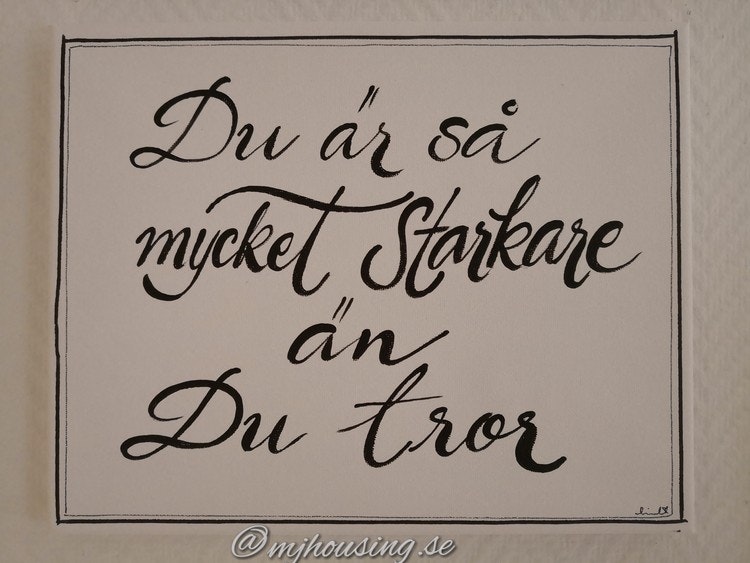 Du är så
mycket Starkare
än
Du tror
@mjhousing.se